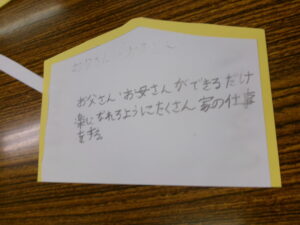 お父さん、お母さんができるだけ
楽になれるようにたくさん 家の仕事
をする